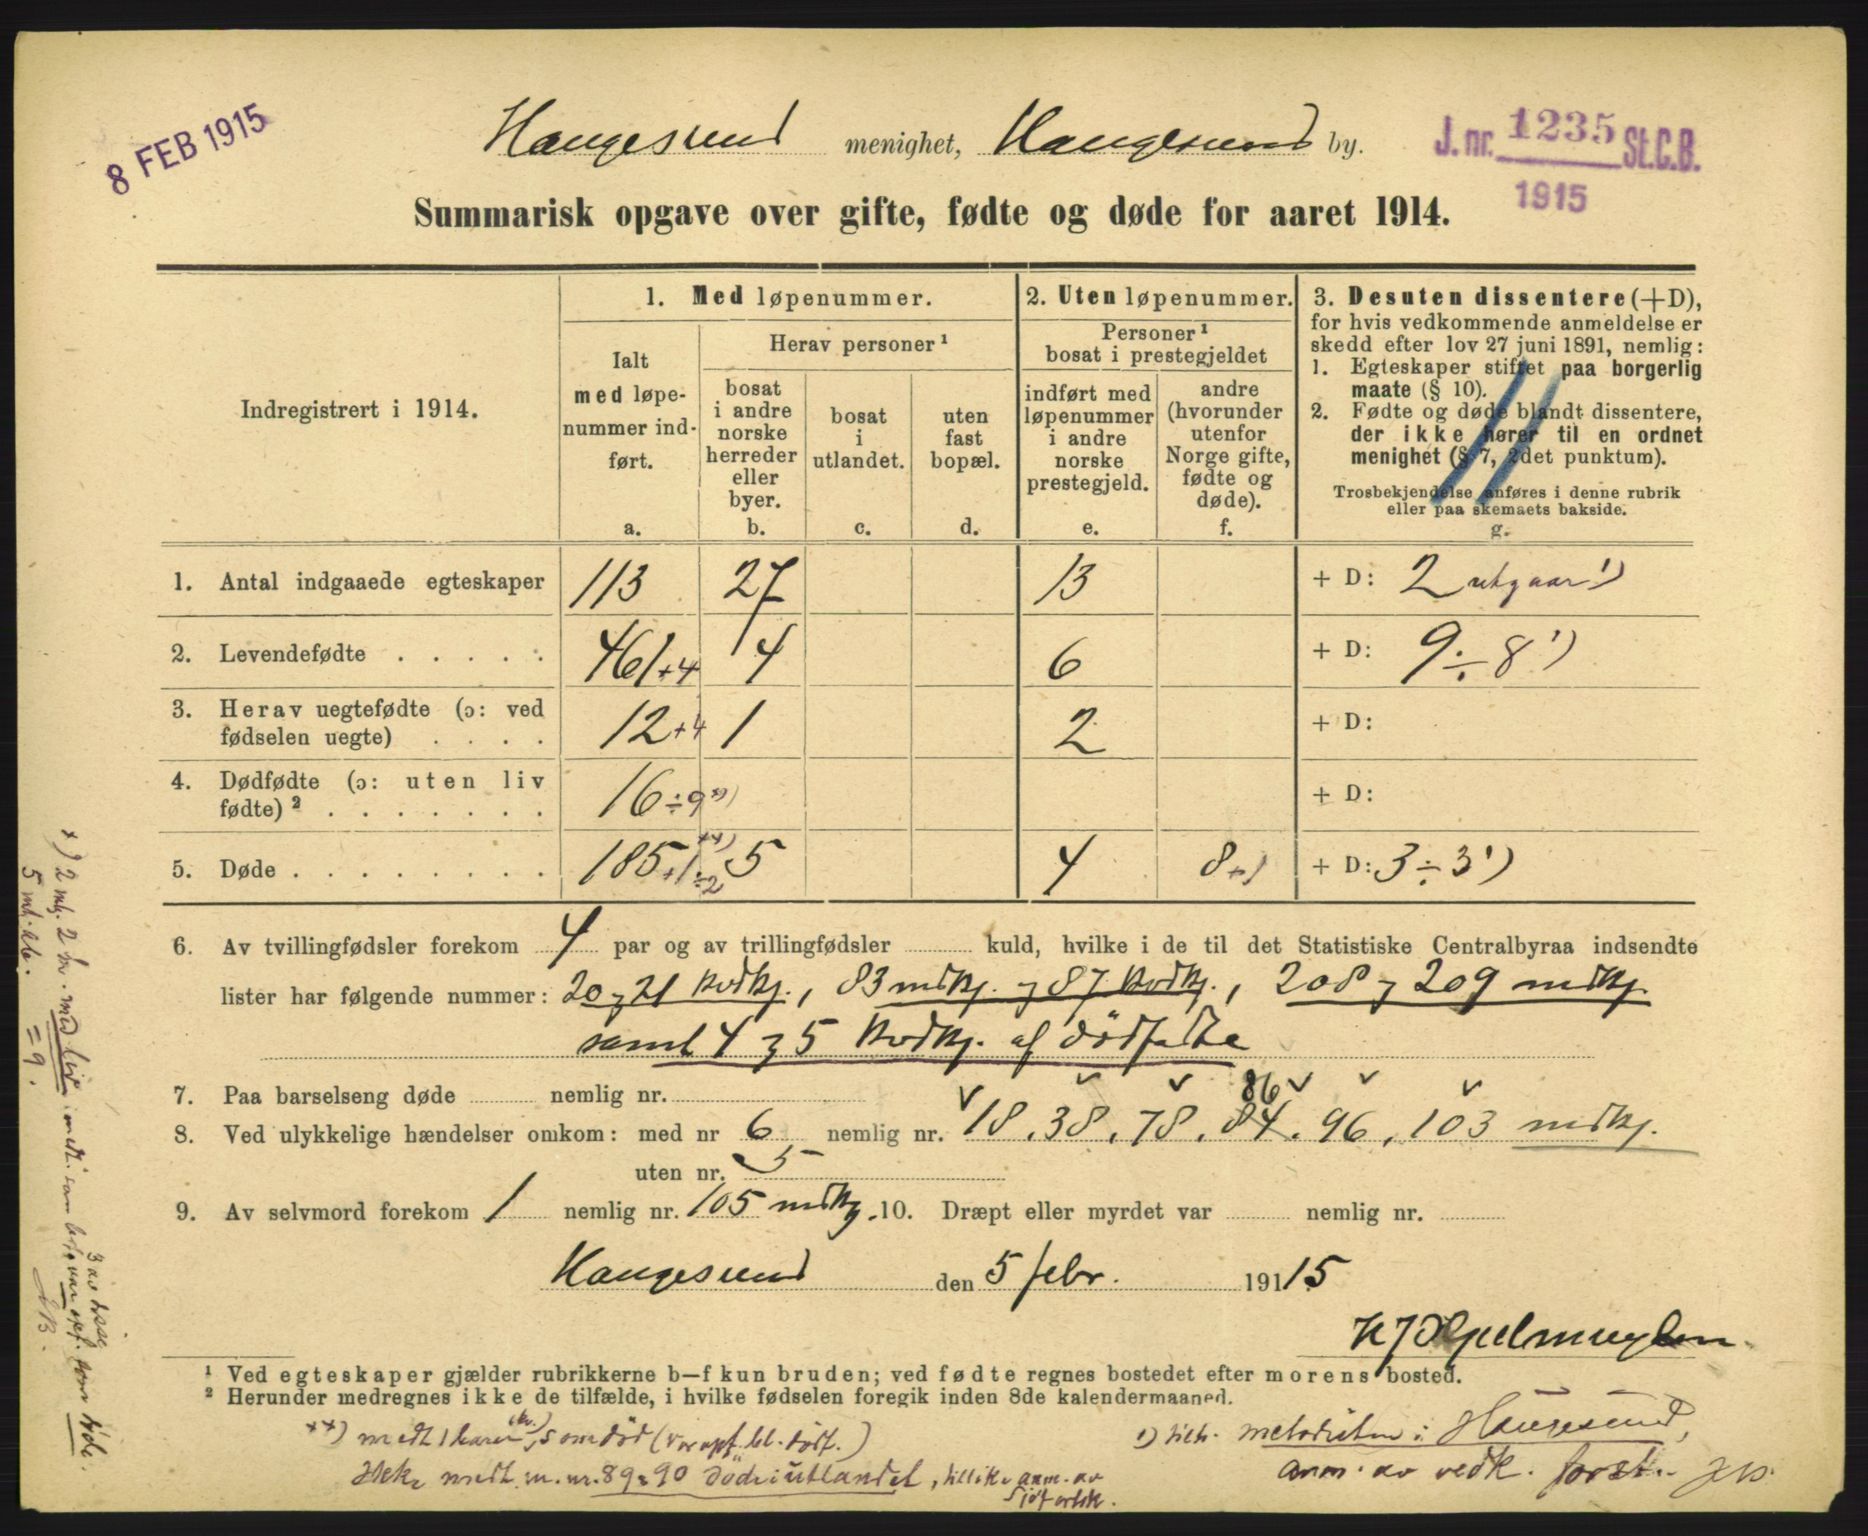 8 FEB 1915
Haugesund menighet, Haugesund by.
J. nr. 1235 St.C.B.
1915
Summarisk opgave over gifte, fødte og døde for aaret 1914.
Indregistrert i 1914.
1. Med løpenummer.
Ialt med løpenummer indført.
a.
Herav personer ¹
bosat i andre norske herreder eller byer.
b.
bosat i utlandet.
c.
uten fast bopæl.
d.
2. Uten løpenummer.
Personer ¹ bosat i prestegjeldet
indført med løpenummer i andre norske prestegjeld.
e.
andre (hvorunder utenfor Norge gifte, fødte og døde).
f.
3. Desuten dissentere (+D),
for hvis vedkommende anmeldelse er
skedd efter lov 27 juni 1891, nemlig:
1. Egteskaper stiftet paa borgerlig
maate (§ 10).
2. Fødte og døde blandt dissentere,
der ikke hører til en ordnet
menighet (§ 7, 2det punktum).
Trosbekjendelse anføres i denne rubrik
eller paa skemaets bakside.
g.
1. Antal indgaaede egteskaper 113 27 13 + D: 2 utgaar ¹)
2. Levendefødte . . . . . 461 +4 4 6 + D: 9 ÷ 8 ¹)
3. Herav uegtefødte (ɔ: ved
fødselen uegte) . . . . 12 +4 1 2 + D:
4. Dødfødte (ɔ: uten liv
fødte) ² . . . . . . . 16 ÷ 9 *) + D:
5. Døde . . . . . . . . 185 +1 **) ÷2 5 4 8 +1 + D: 3 ÷ 3 ¹)
6. Av tvillingfødsler forekom 4 par og av trillingfødsler kuld, hvilke i de til det Statistiske Centralbyraa indsendte
lister har følgende nummer: 20 og 21 kvdkj., 83 mdkj. og 87 kvdkj., 208 og 209 mdkj.
samt 4 og 5 kvdkj. af dödfødte
7. Paa barselseng døde nemlig nr.
8. Ved ulykkelige hændelser omkom: med nr 6 nemlig nr. 18, 38, 78, 84, 86 96, 103 mdkj.
uten nr. 5
9. Av selvmord forekom 1 nemlig nr. 105 mdkj. 10. Dræpt eller myrdet var nemlig nr.
Haugesund den 5 febr. 19115
¹ Ved egteskaper gjælder rubrikkerne b—f kun bruden; ved fødte regnes bostedet efter morens bosted.
² Herunder medregnes ikke de tilfælde, i hvilke fødselen foregik inden 8de kalendermaaned.
**) medt 1 som död (var opf. bl. dödf.)
Ikke medt m. nr. 89 & 90 döde i utlandet, tillike anm. av
sjöf.
¹) tilh. metodisten i Haugesund,
anm. av vedk. forst.
*) 2 2 med liv
5
= 9.
3 av disse var opf. som döde.